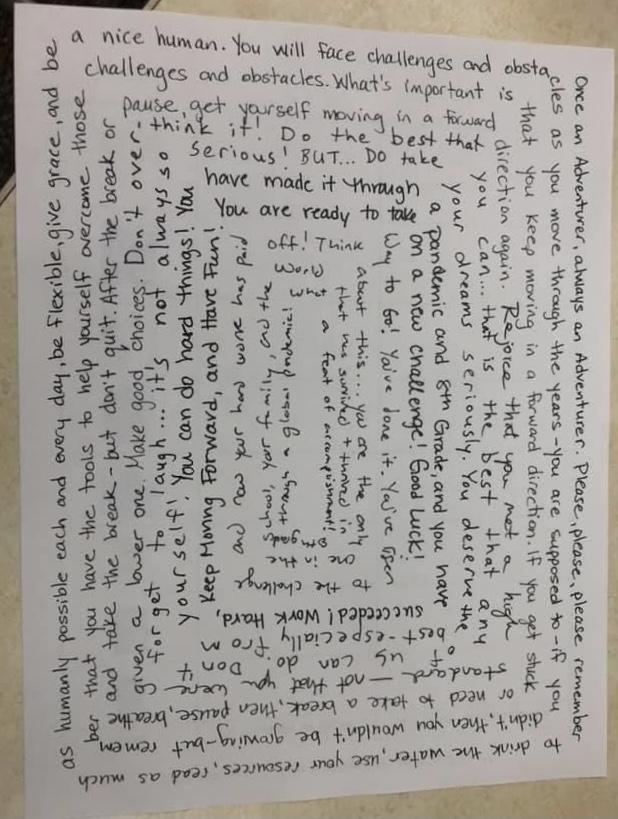 Once an Adventurer, always an Adventurer. Please, please, please remember
to drink the water, use your resources, read as much
as humanly possible each and every day, be flexible, give grace, and be
a nice human. You will face challenges and obsta
cles as you move through the years - you are supposed to - if you
didn't, then you wouldn't be growing - but remem
ber that you have the tools to help yourself overcome those
challenges and obstacles. What's important is
that you keep moving in a forward direction. If you get stuck
or need to take a break, then pause, breathe,
and take the break - but don't quit. After the break or
pause, get yourself moving in a forward
direction again. Rejoice that you met a high
standard — not that you were
given a lower one. Make good choices. Don't over-
think it! Do the best that
you can... that is the best that any
of us can do. Don't
forget to laugh... it's not always so
serious! BUT... DO take
your dreams seriously. You deserve the
best - especially from
yourself! You can do hard things! You
have made it through
a pandemic and 8th Grade, and you have
succeeded! Work Hard,
Keep Moving Forward, and Have Fun!
You are ready to take
on a new challenge! Good Luck!
Way to Go! You've done it. You've risen
to the challenge
and now your hard work has paid
off! Think
about this... you are the only
one in the
school, your family, and the
World
that has survived + thrived in
8th grade
through a global pandemic!
What
a feat of accomplishment!